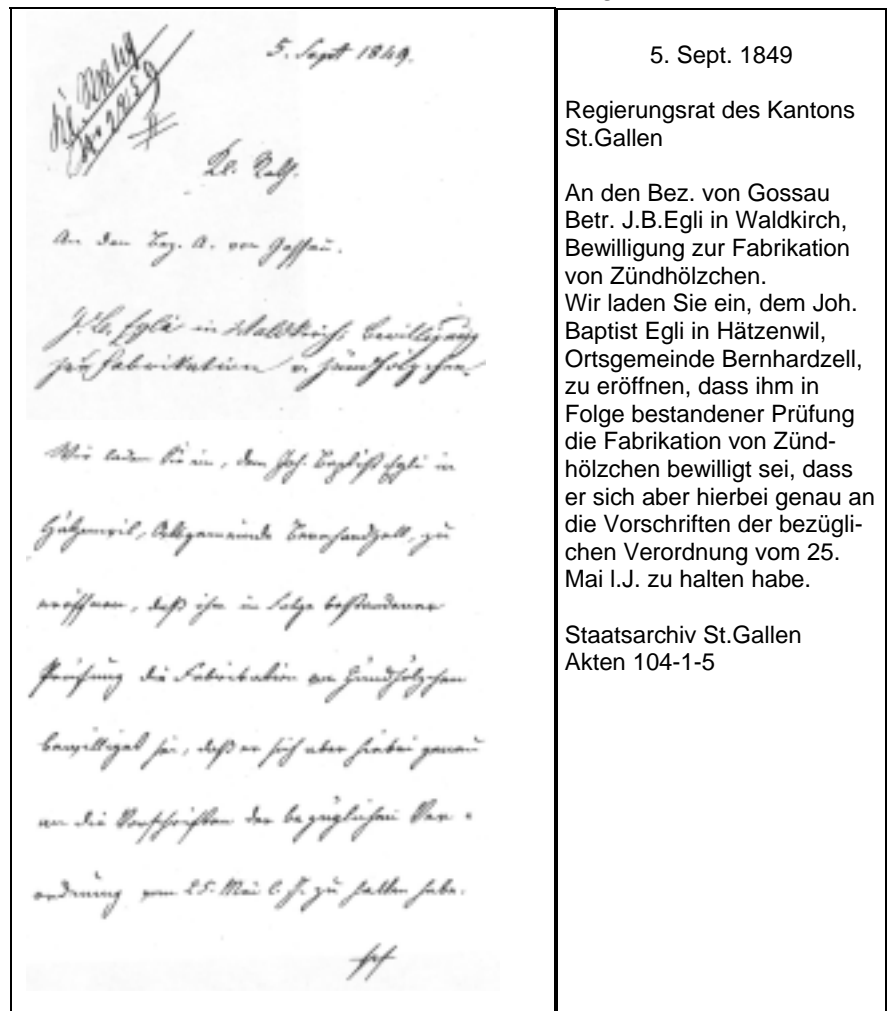 5. Sept 1849.
Kl. Rath.
An den Bez. A. von Gossau.
J. B. Egli in Waldkirch; Bewilligung
zur Fabrikation v. Zündhölzchen.
Wir laden Sie ein, dem Joh. Baptist Egli in
Hätzenwil, Ortsgemeinde Bernhardzell, zu
eröffnen, daß ihm in Folge bestandener
Prüfung die Fabrikation von Zündhölzchen
bewilligt sei, daß er sich aber hiebei genau
an die Vorschriften der bezüglichen Ver-
ordnung vom 25. Mai l. J. zu halten habe.
5. Sept. 1849
Regierungsrat des Kantons
St.Gallen
An den Bez. von Gossau
Betr. J.B.Egli in Waldkirch,
Bewilligung zur Fabrikation
von Zündhölzchen.
Wir laden Sie ein, dem Joh.
Baptist Egli in Hätzenwil,
Ortsgemeinde Bernhardzell,
zu eröffnen, dass ihm in
Folge bestandener Prüfung
die Fabrikation von Zünd-
hölzchen bewilligt sei, dass
er sich aber hierbei genau an
die Vorschriften der bezügli-
chen Verordnung vom 25.
Mai l.J. zu halten habe.
Staatsarchiv St.Gallen
Akten 104-1-5